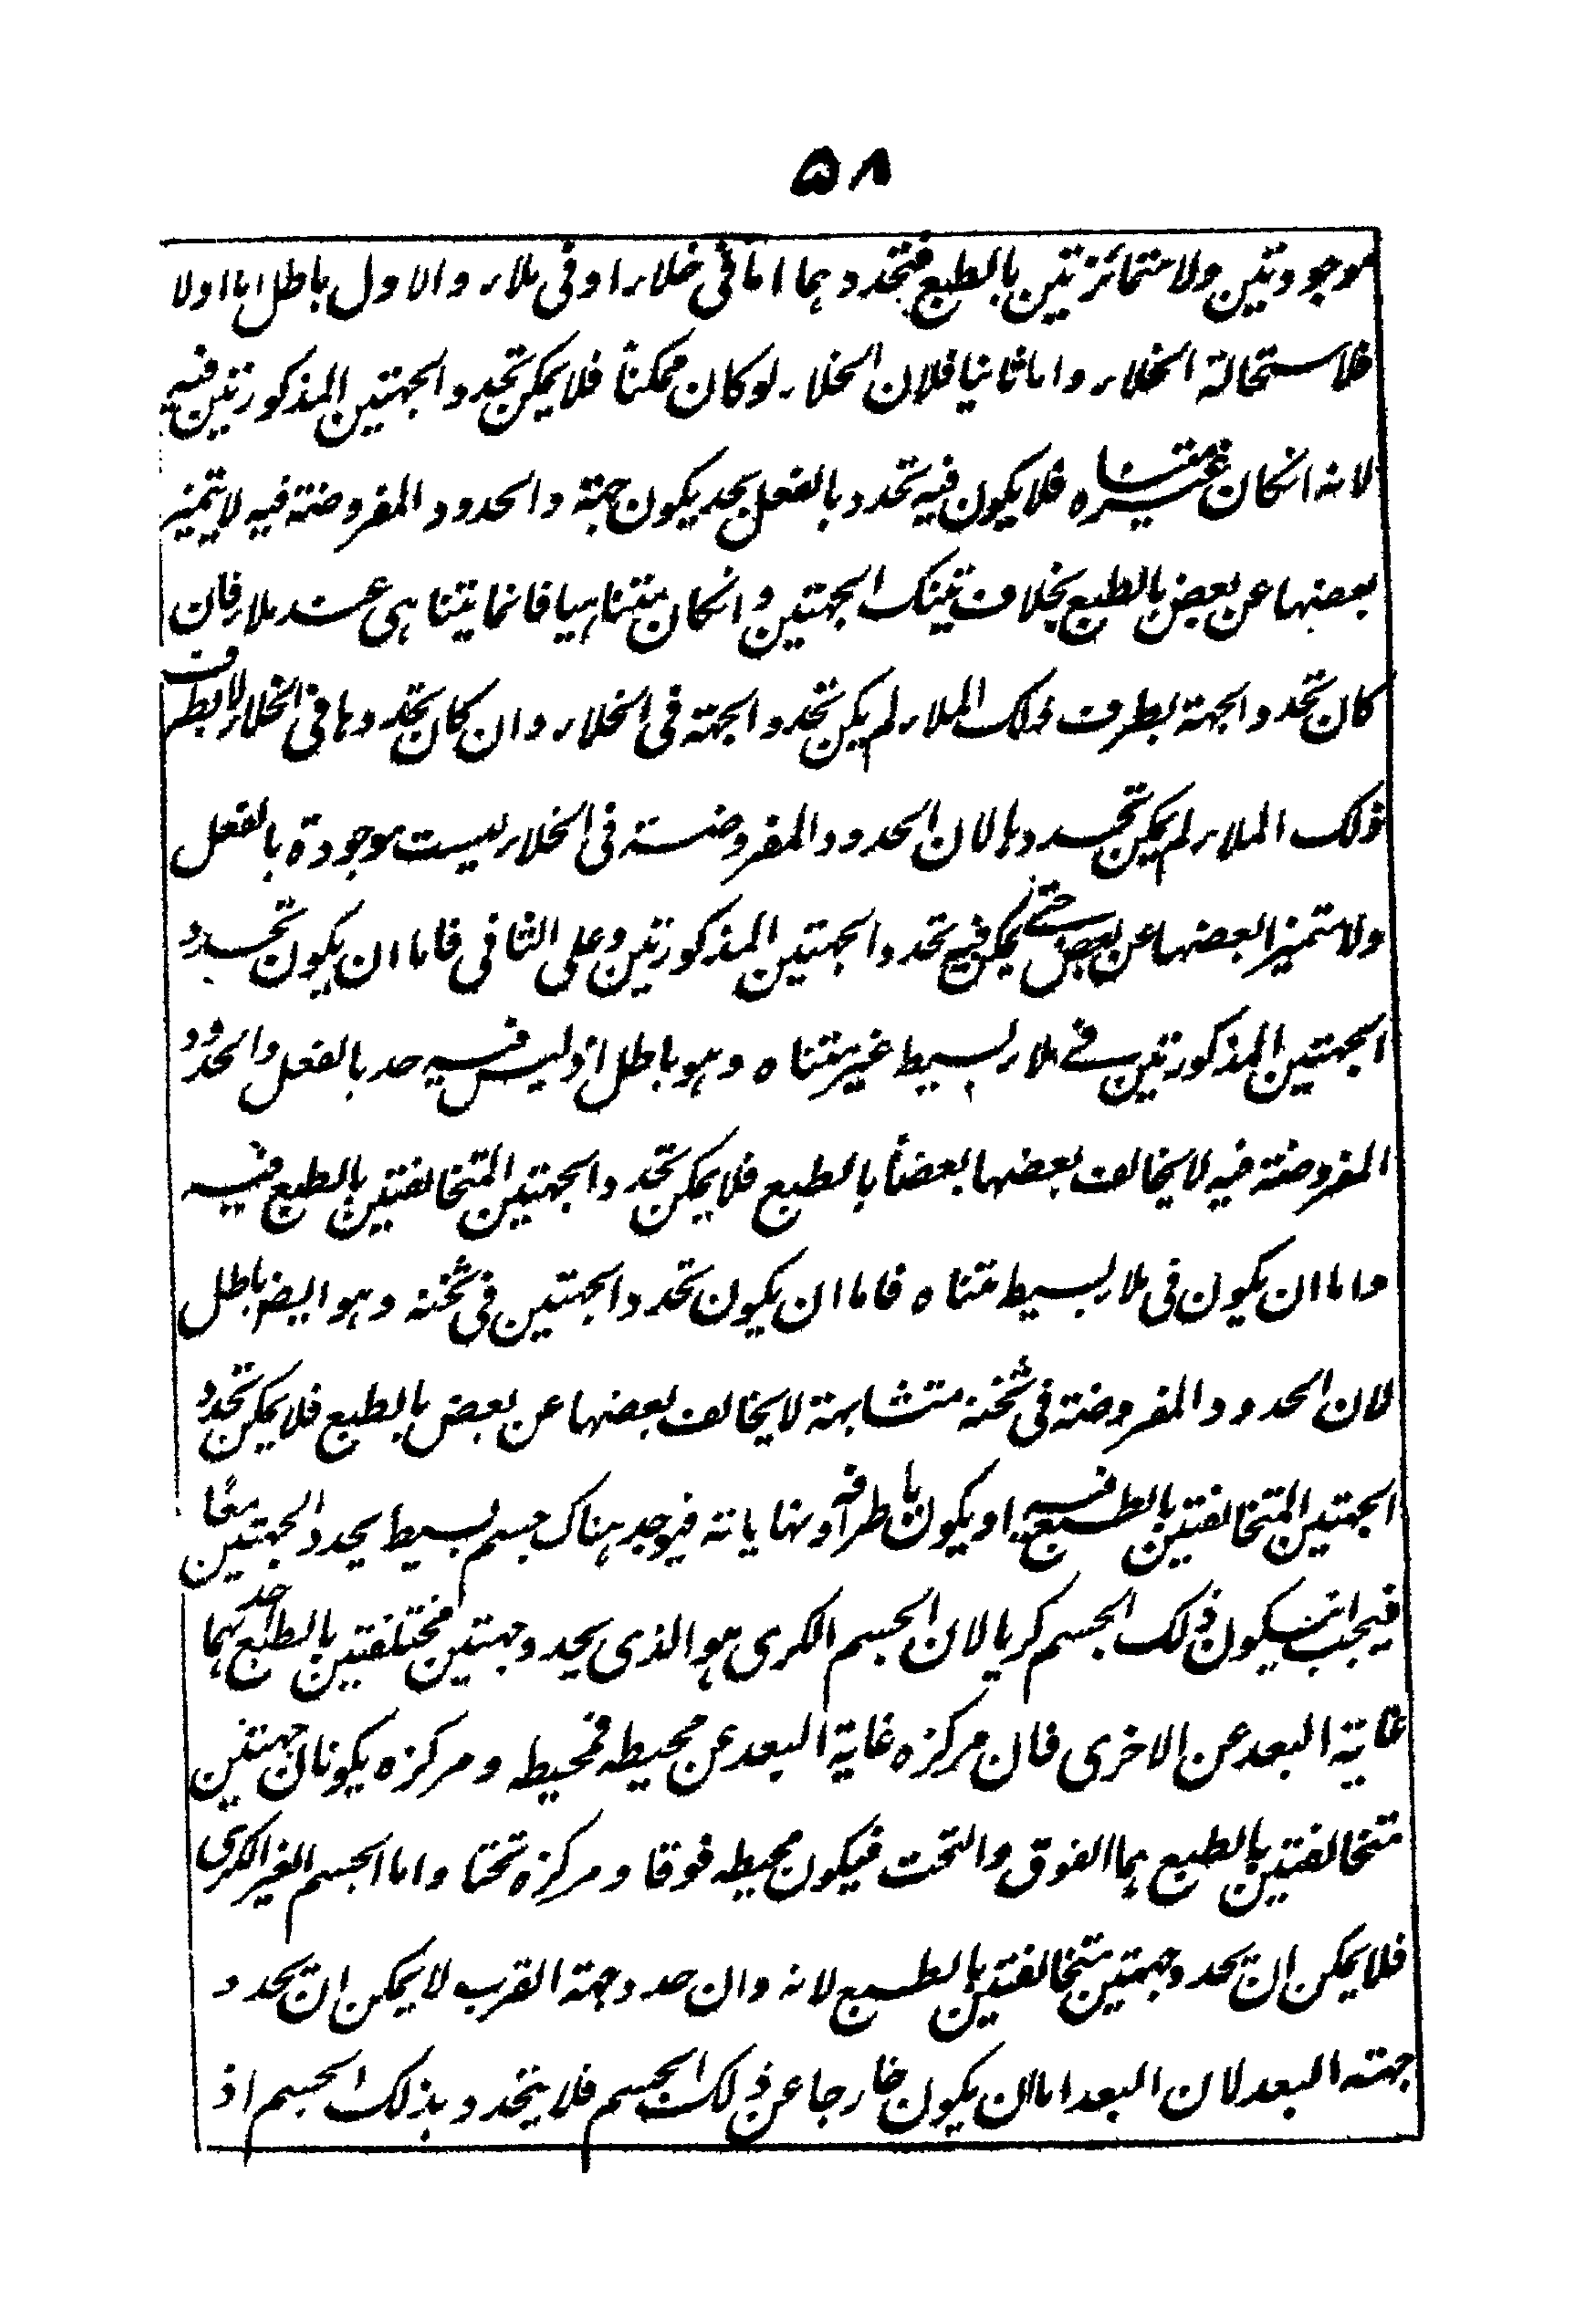 ۵۸
موجودتين ولا متمائزتين بالطبع فتحددهما اما فی خلاء او فی ملاء والاول باطل اما اولا
فلاستحالة الخلاء واما ثانيا فلان الخلاء لو كان ممكناً فلا يمكن تحدد الجهتين المذكورتين فيه
لانه انكان غير متناه فلا يكون فيه تحدد بالفعل بحد يكون جهة والحدود المفروضة فيه لا يتميز
بعضها عن بعض بالطبع بخلاف تينك الجهتين وانكان متناهيا فانما يتناهی عند ملاء فان
كان تحدد الجهة بطرف ذلك الملاء لم يكن تحدد الجهة فی الخلاء وان كان تحددها فی الخلاء لا بطرف
ذلك الملاء لم يمكن تحددها لان الحدود المفروضة فی الخلاء ليست موجودة بالفعل
ولا متميزا بعضها عن بعض حتے يمكن فيه تحدد الجهتين المذكورتين وعلی الثانی فاما ان يكون تحدد
الجهتين المذكورتين فے ملاء بسيط غير متناه وهو باطل اذ ليس فيه حد بالفعل والحدود
المفروضة فيه لا يخالف بعضها بعضاً بالطبع فلا يمكن تحدد الجهتين المتخالفتين بالطبع فيه
واما ان يكون فی ملاء بسيط متناه فاما ان يكون تحدد الجهتين فی ثخنه وهو ايضا باطل
لان الحدود المفروضة فی ثخنه متشابهة لا يخالف بعضها عن بعض بالطبع فلا يمكن تحدد
الجهتين المتخالفتين بالطبع فيه او يكون باطرافه ونهاياته فيوجد هناك جسم بسيط يحدد الجهتين معًا
فيجب ان يكون ذلك الجسم كريا لان الجسم الكری هو الذی يحدد جهتين مختلفتين بالطبع احدهما
غاية البعد عن الاخری فان مركزه غاية البعد عن محيطه فمحيطه ومركزه يكونان جهتين
متخالفتين بالطبع هما الفوق والتحت فيكون محيطه فوقا ومركزه تحتا واما الجسم الغير الكری
فلا يمكن ان يحدد جهتين متخالفتين بالطبع لانه وان حدد جهة القرب لا يمكن ان يحدد
جهة البعد لان البعد اما ان يكون خارجا عن ذلك الجسم فلا يتحدد بذلك الجسم اذ